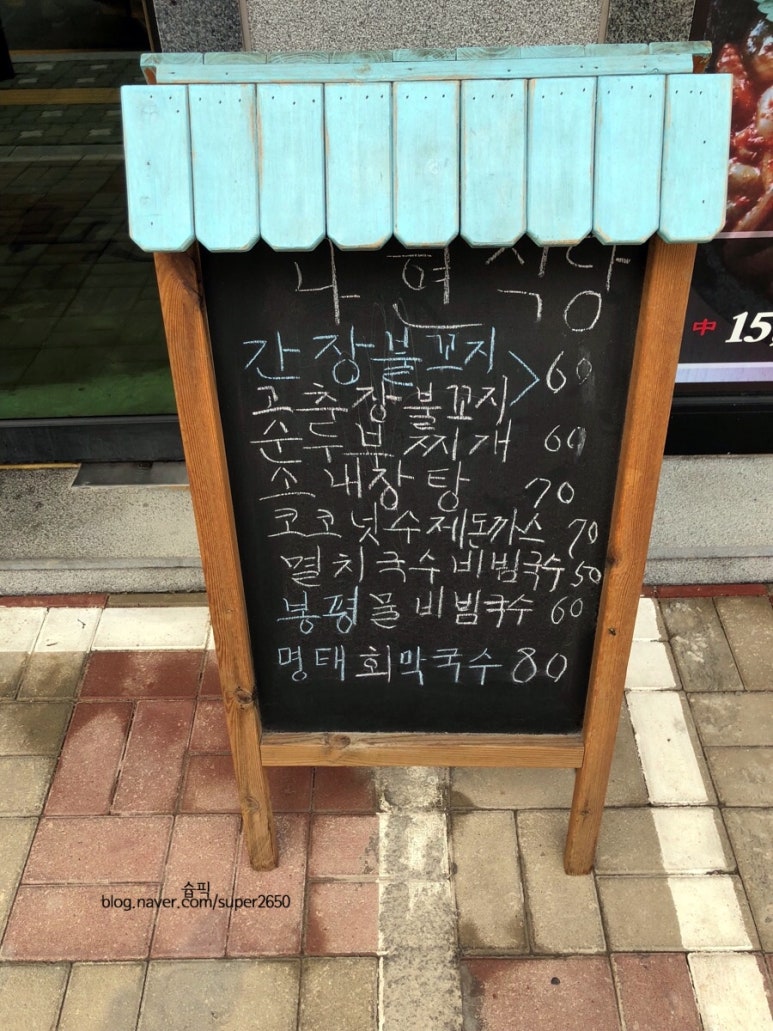 간장불꼬지
고추장불꼬지 > 60
순두부찌개 60
소내장탕 70
코코넛수제돈까스 70
멸치국수비빔국수 50
봉평물비빔국수 60
명태회막국수 80
中 15,
숩픽
blog.naver.com/super2650